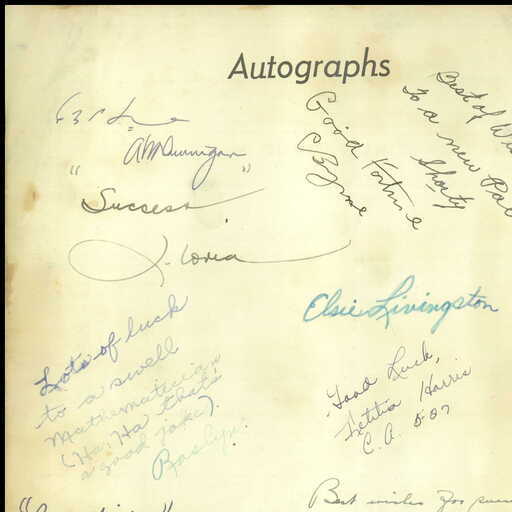 Autographs
"Success"
Good Fortune
C Byrne
Best of
To a new Pal
Shorty
Elsie Livingston
Lots of luck
to a swell
Mathematician
(Ha: Ha that's
a good joke).
Roslyn
Good Luck,
Letitia Harris
C. A. 507
Best wishes for